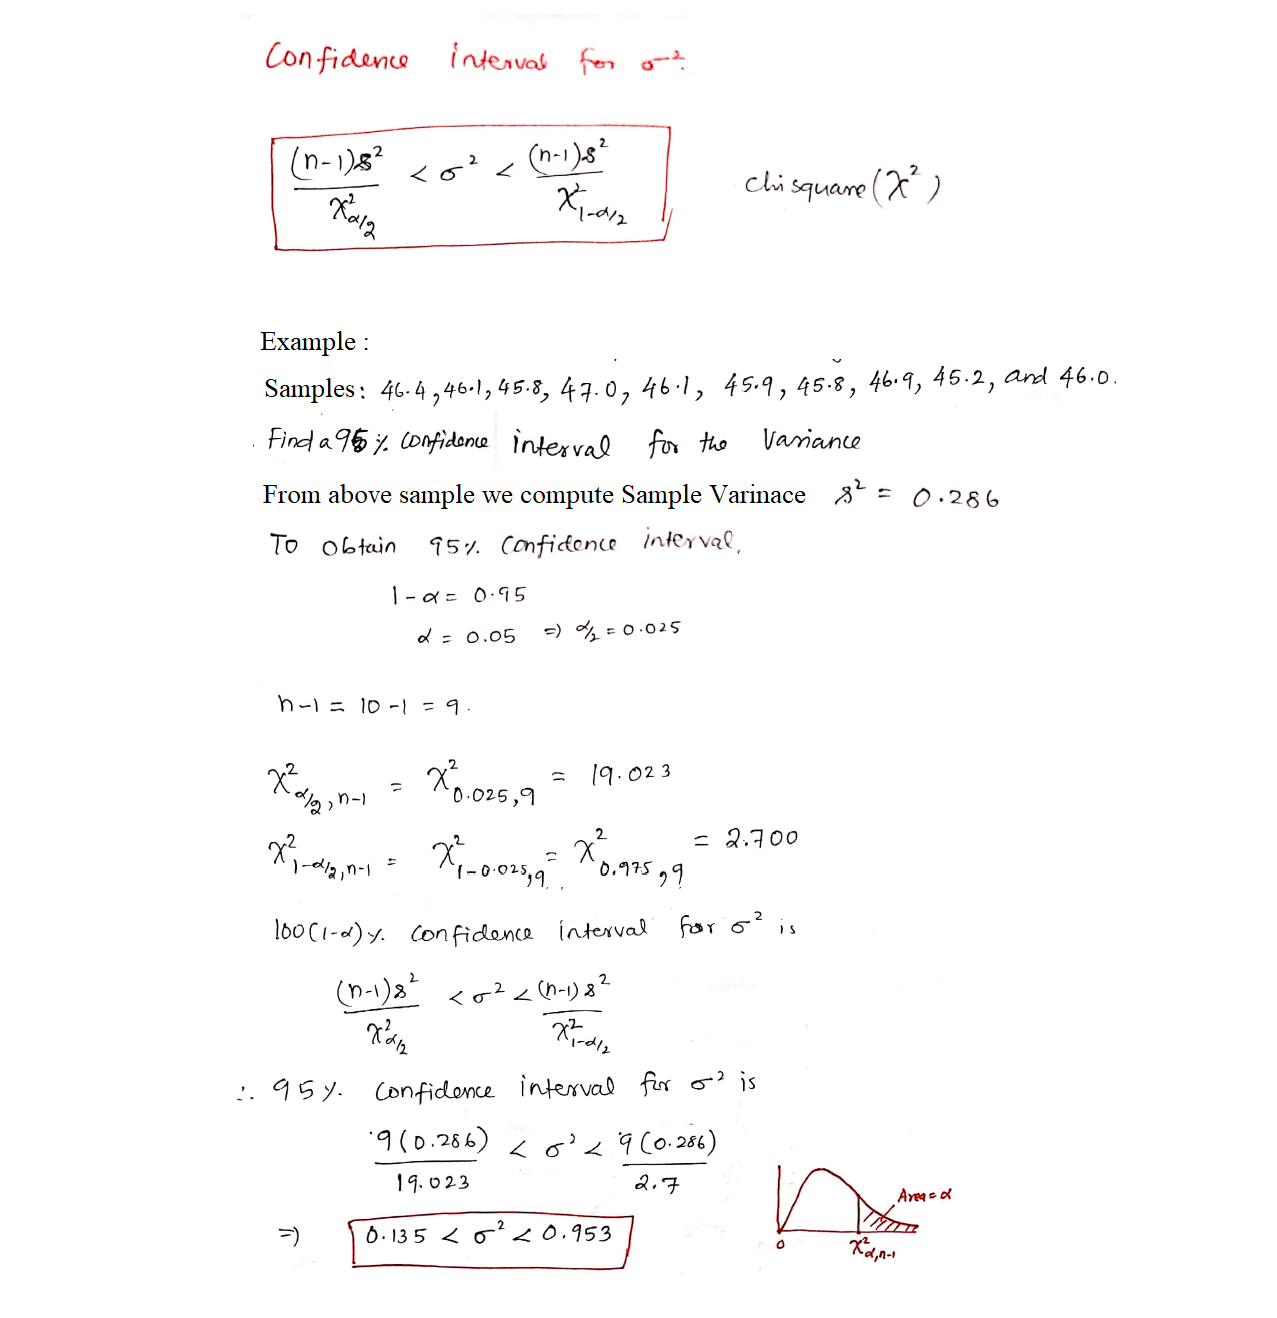 Confidence interval for σ²:
(n-1)s²/χ²α/2 < σ² < (n-1)s²/χ²1-α/2
chisquare (χ²)
Example :
Samples: 46.4, 46.1, 45.8, 47.0, 46.1, 45.9, 45.8, 46.9, 45.2, and 46.0.
Find a 95% confidence interval for the variance
From above sample we compute Sample Varinace s² = 0.286
To obtain 95% confidence interval,
1-α = 0.95
α = 0.05 ⇒ α/2 = 0.025
n-1 = 10-1 = 9.
χ²α/2, n-1 = χ²0.025, 9 = 19.023
χ²1-α/2, n-1 = χ²1-0.025, 9 = χ²0.975, 9 = 2.700
100(1-α)% confidence interval for σ² is
(n-1)s²/χ²α/2 < σ² < (n-1)s²/χ²1-α/2
∴ 95% confidence interval for σ² is
9(0.286)/19.023 < σ² < 9(0.286)/2.7
⇒ 0.135 < σ² < 0.953
Area = α
0
χ²α, n-1